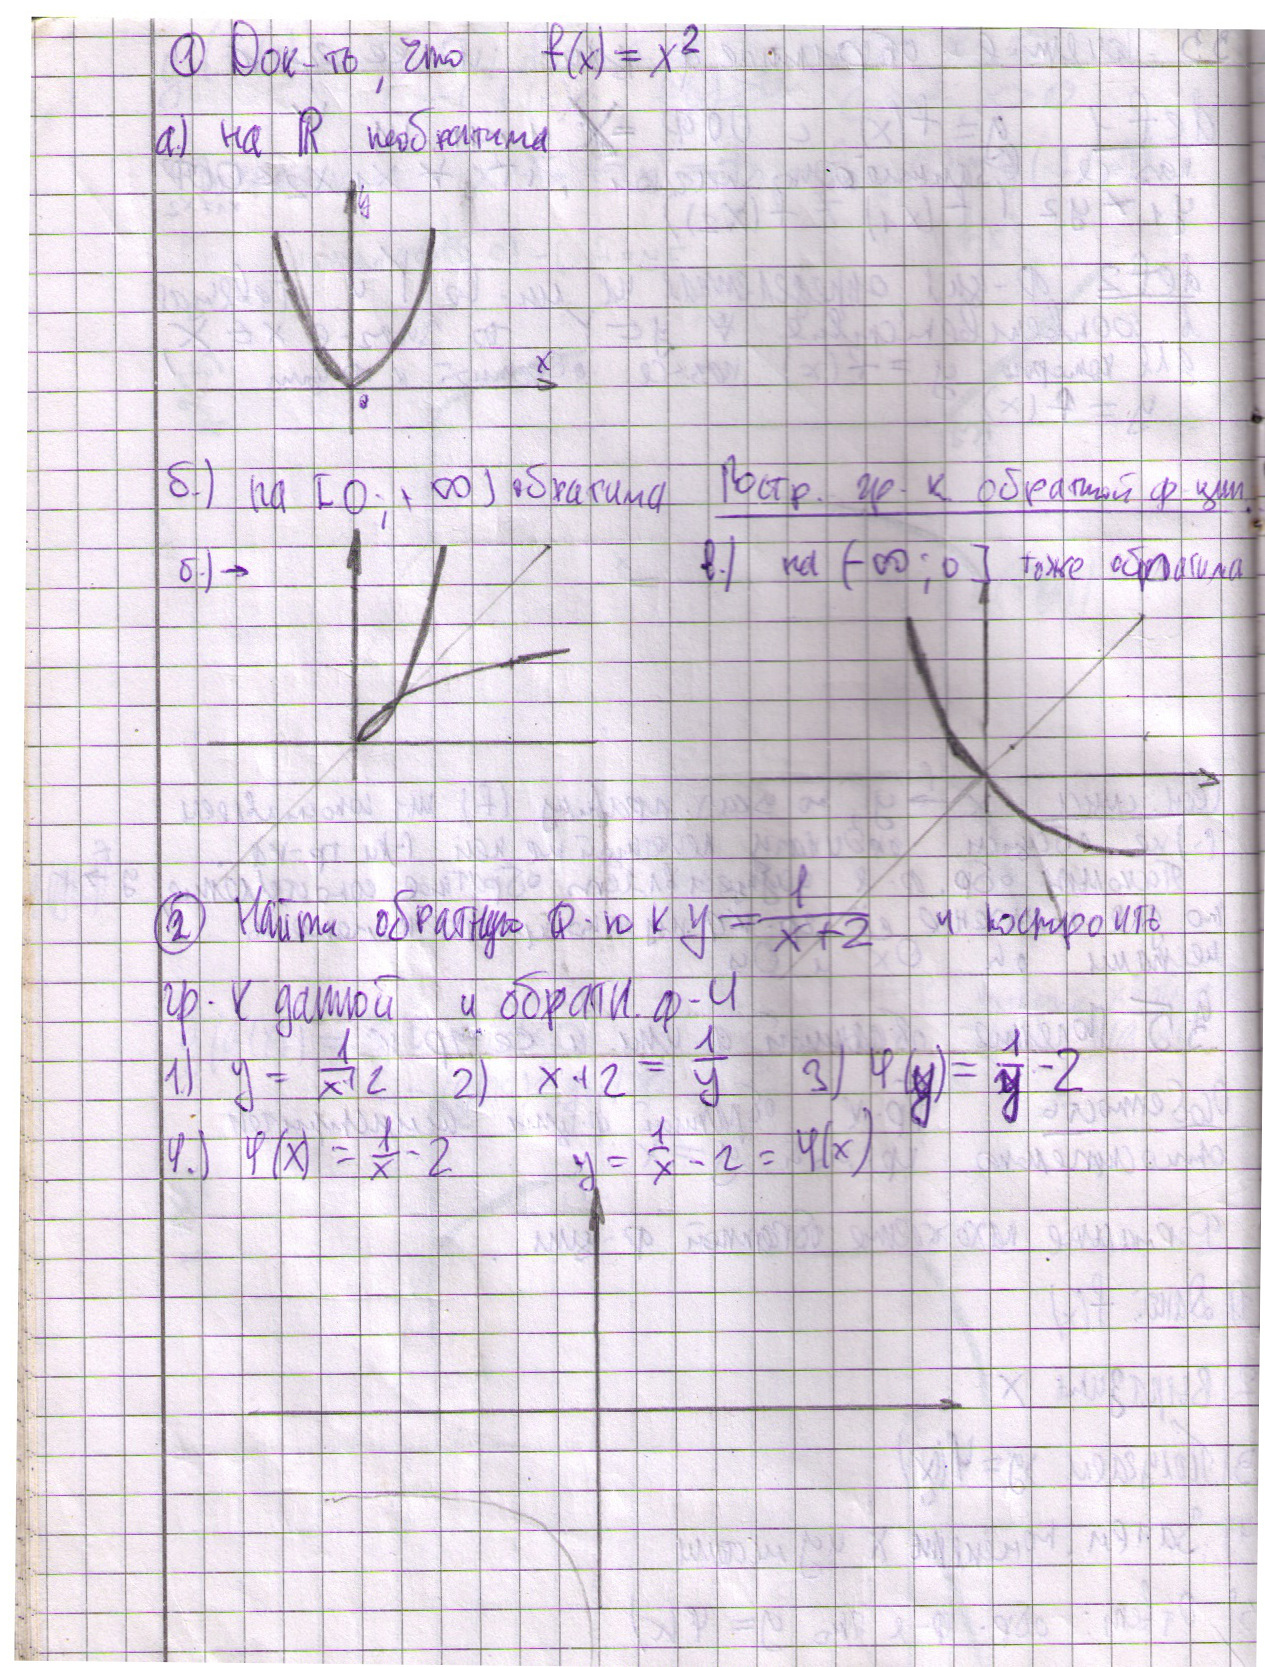 ① Док-ть, что f(x) = x²
а.) на ℝ необратима
y
x
0
б.) на [0; +∞) обратима Постр. гр. к обратной ф-ции.
б.) → в.) на (-∞; 0] тоже обратима
② Найти обратную ф-ю к y = 1/(x+2) и построить
гр. к данной и обратн. ф-и
1.) y = 1/(x+2) 2) x+2 = 1/y 3) φ(y) = 1/y - 2
4.) φ(x) = 1/x - 2 y = 1/x - 2 = φ(x)